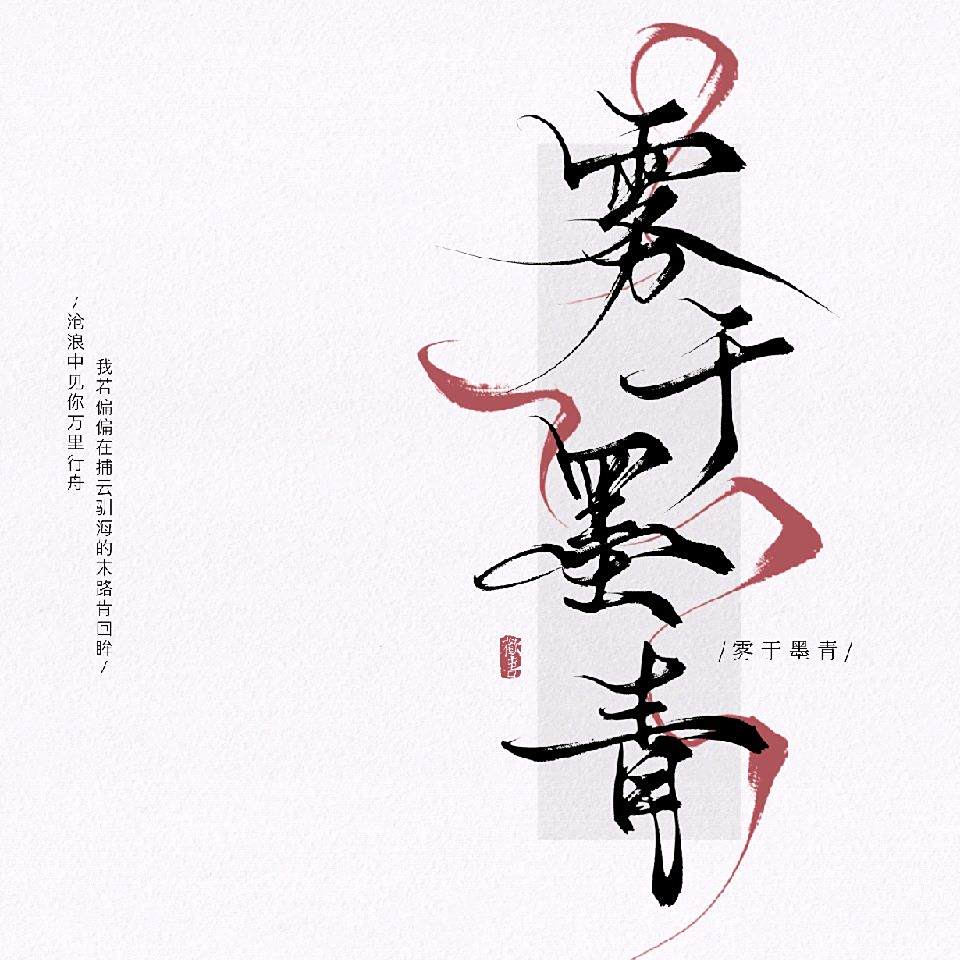 雾干墨青
/雾干墨青/
歡書
/沧浪中见你万里行舟
我若偏偏在捕云驯海的末路肯回眸/